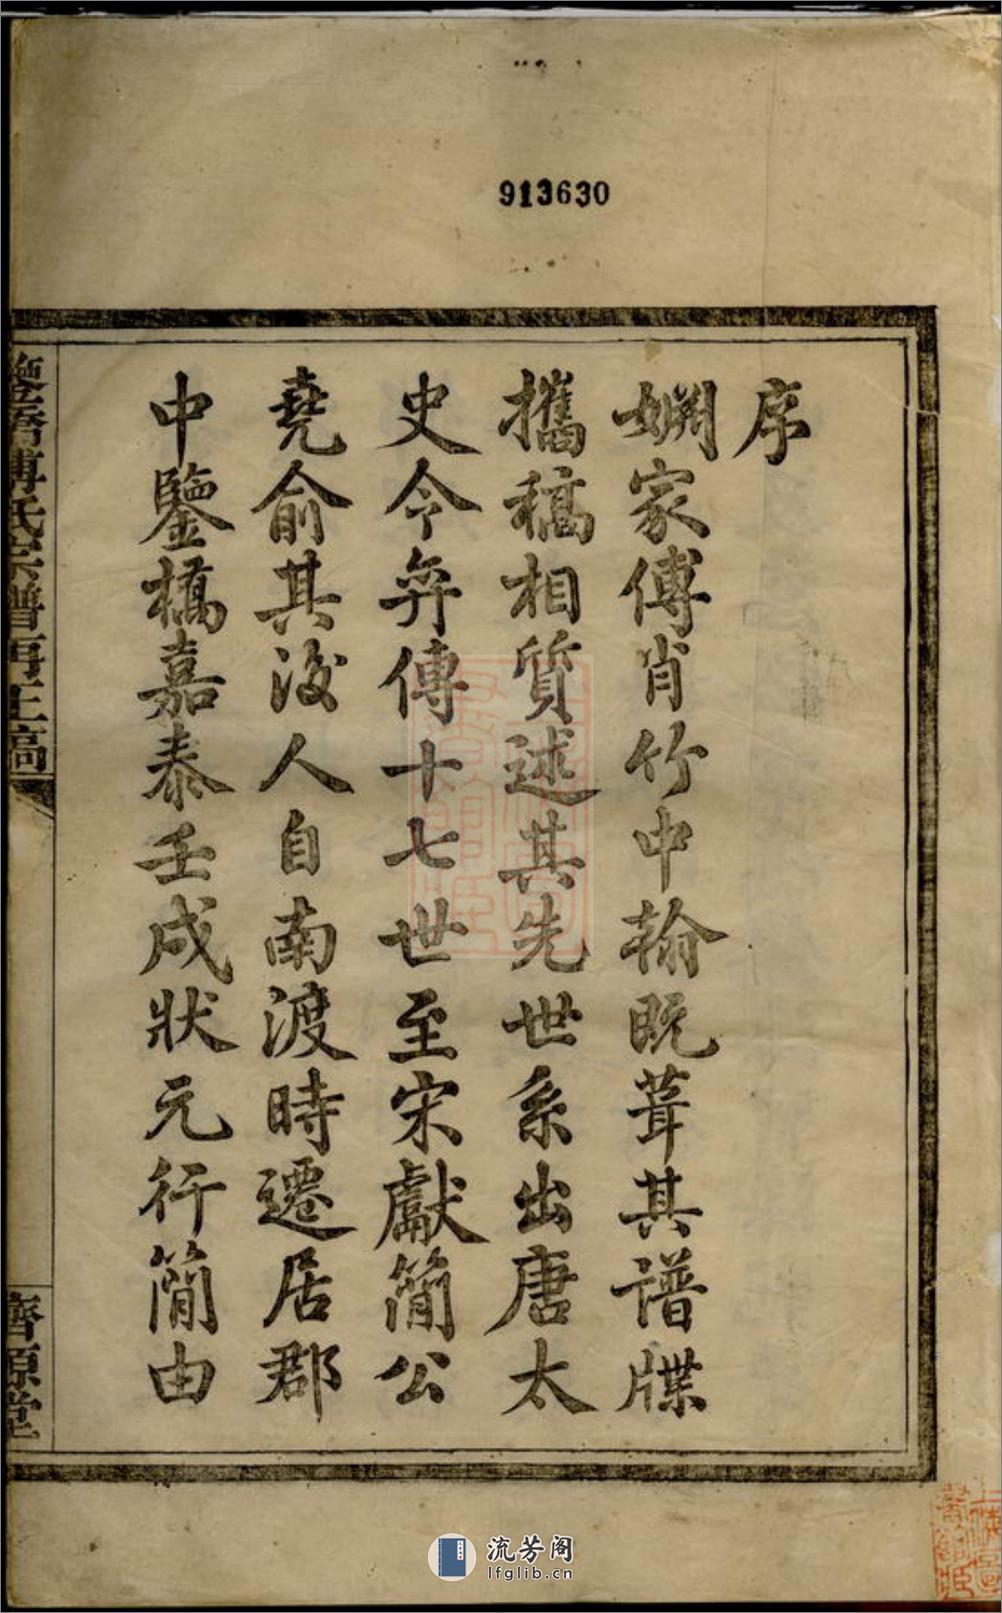 913630
序
姻家傅肖竹中翰既葺其譜牒
攜稿相質述其先世系出唐太
史令弈傳十七世至宋獻簡公
堯俞其後人自南渡時遷居郡
中鑒橋嘉泰壬戌狀元行簡由
鑒橋傅氏宗譜再正稿
齊源堂
流芳阁
lfglib.cn